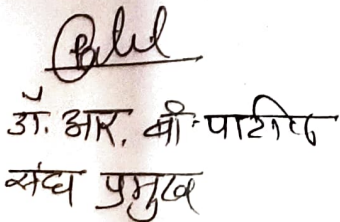 डॉ. आर. बी. पाटील
संघ प्रमुख